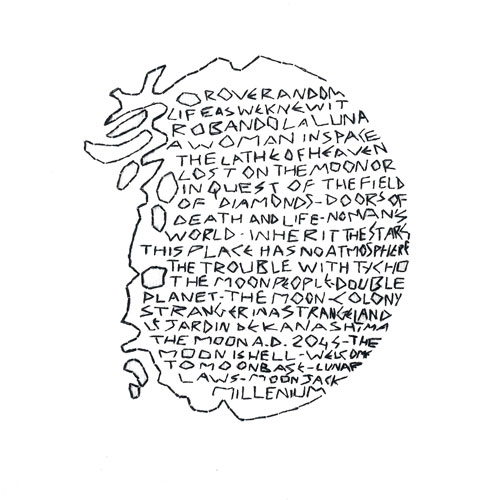 ROVERANDOM
LIFE AS WE KNEW IT
ROBANDO LA LUNA
A WOMAN IN SPACE
THE LATHE OF HEAVEN
LOST ON THE MOON OR
IN QUEST OF THE FIELD
OF DIAMONDS - DOORS OF
DEATH AND LIFE - NO MAN'S
WORLD - INHERIT THE STARS
THIS PLACE HAS NO ATMOSPHERE
THE TROUBLE WITH TYCHO
THE MOON PEOPLE - DOUBLE
PLANET - THE MOON COLONY
STRANGER IN A STRANGE LAND
LE JARDIN DE KANASHIMA
THE MOON A.D. 2044 - THE
MOON IS HELL - WELCOME
TO MOONBASE - LUNAR
LAWS - MOONJACK
MILLENIUM